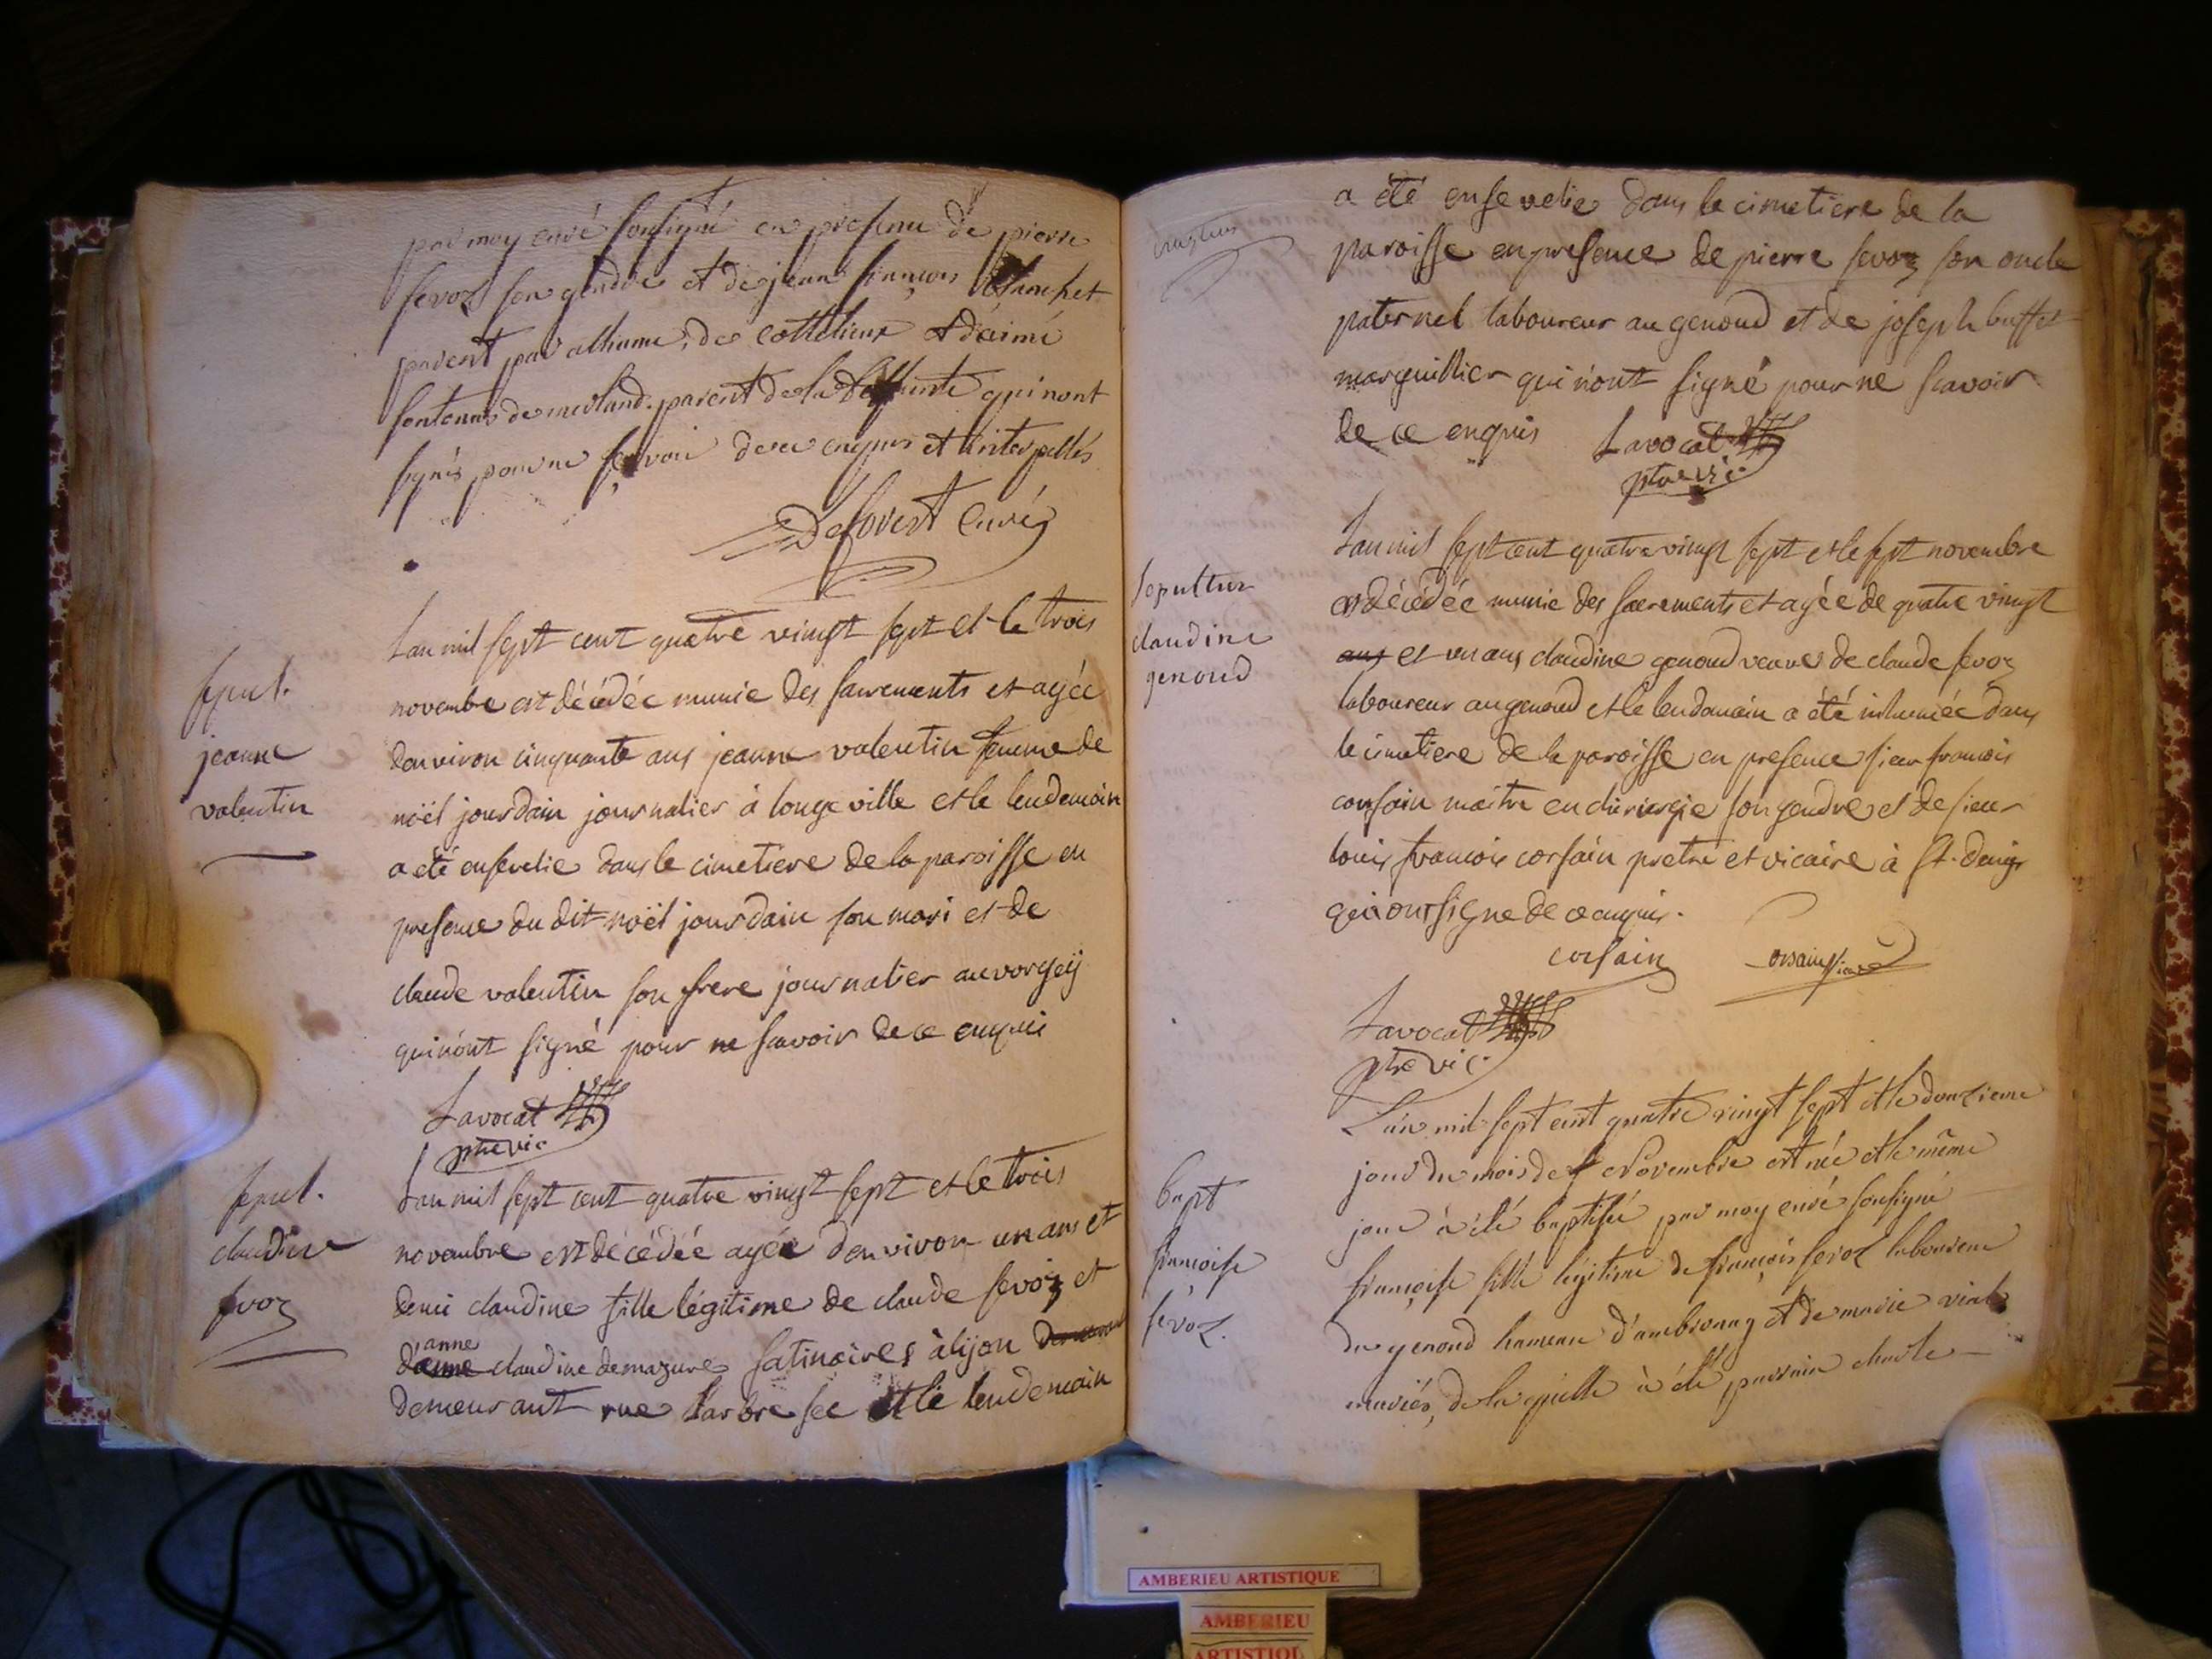 par moy curé soussigné en presence de pierre
sevoz son gendre et de jean françois blanchet
parent par alliance, de cottelieux et d'aimé
fontenus de merland parent de la deffunte qui nont
signés pour ne sçavoir de ce enquis et interpellés
Deforest Curé
Sepul.
jeanne
valentin
L'an mil sept cent quatre vingt sept et le trois
novembre est décédée munie des sacrements et agée
denviron cinquante ans jeanne valentin femme de
noël jourdain journalier à longeville et le lendemain
a été ensevelie dans le cimetiere de la paroisse en
presence du dit noël jourdain son mari et de
claude valentin son frere journalier au vorgey
qui n'ont signé pour ne scavoir de ce enquis
Lavocat
ptre vic
sepul.
claudine
sevoz
L'an mil sept cent quatre vingt sept et le trois
novembre est décédée agée d'environ un ans et
demi claudine fille légitime de claude sevoz et
anne
d'anne claudine demazures satinaires à lijon
demeurant rue larbre sec et le lendemain
a été ensevelie dans le cimetiere de la
paroisse en presence de pierre sevoz son oncle
paternel laboureur au genoud et de joseph buffet
marguillier qui n'ont signé pour ne scavoir
de ce enquis Lavocat
ptre vic
Sepultur
claudine
genoud
L'an mil sept cent quatre vingt sept et le sept novembre
est décédée munie des sacrements et agée de quatre vingt
ans et un ans claudine genoud veuve de claude sevoz
laboureur au genoud et le lendemain a été inhumée dans
le cimetiere de la paroisse en presence sieur francois
corsain maitre en chirurgie son gendre et de sieur
louis francois corsain pretre et vicaire à st. denis
qui ont signe de ce enquis.
corsain Corsain vicaire
Lavocat
ptre vic
Bapt
françoise
sévoz.
L'an mil sept cent quatre vingt sept et le douzieme
jour du mois de Novembre est née et le même
jour à été baptisée par moy curé soussigné
françoise fille légitime de françois sevoz laboureur
du genoud hameau d'ambronay et de marie vial
mariés, de laquelle à été parrain charle
AMBERIEU ARTISTIQUE
AMBERIEU
ARTISTIQ